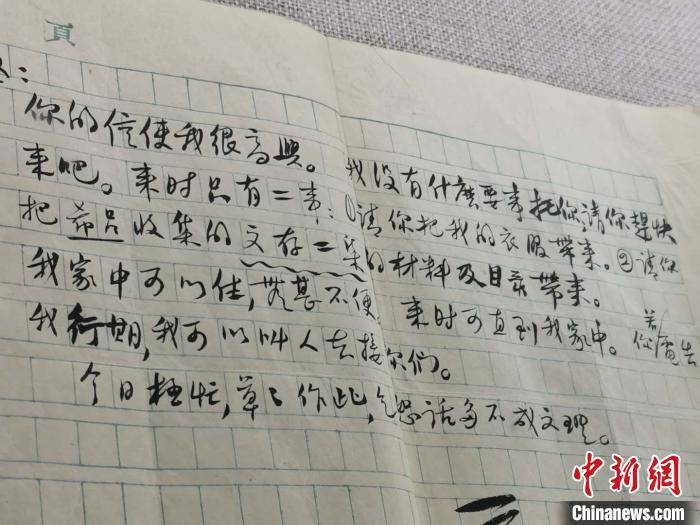 頁
你的信使我很高興。我没有什麼要事托你,請你趕快
来吧。来时只有二事:①請你把我的衣服带来。②請你
把 收集的文存二集的材料及目录带来。
我家中可以住,無甚不便。来时可直到我家中。若你電告
我行期,我可以叫人去接你们。
今日極忙,草草作此,乞恕話多不成文理。
中新网
Chinanews.com